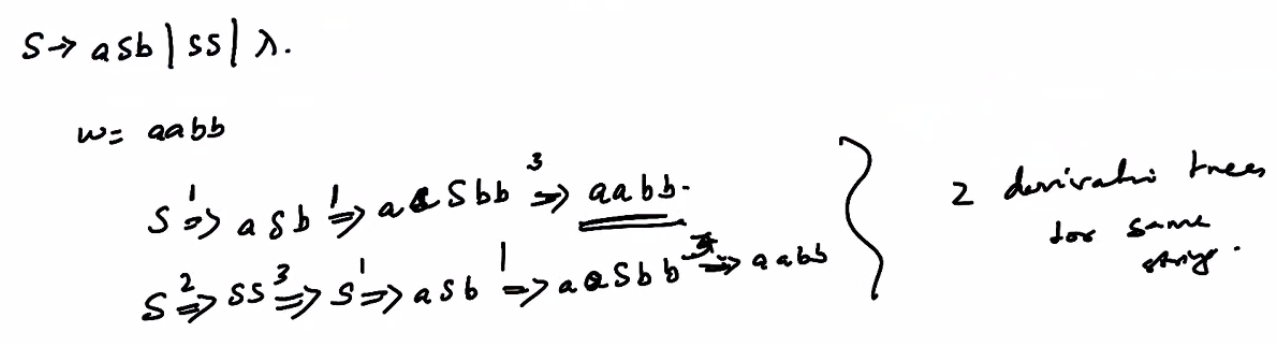 S → aSb | SS | λ.
w = aabb
S ¹⇒ aSb ¹⇒ aaSbb ³⇒ aabb.
S ²⇒ SS ³⇒ S ¹⇒ aSb ¹⇒ aaSbb ³⇒ aabb
2 derivation trees
for same
string.